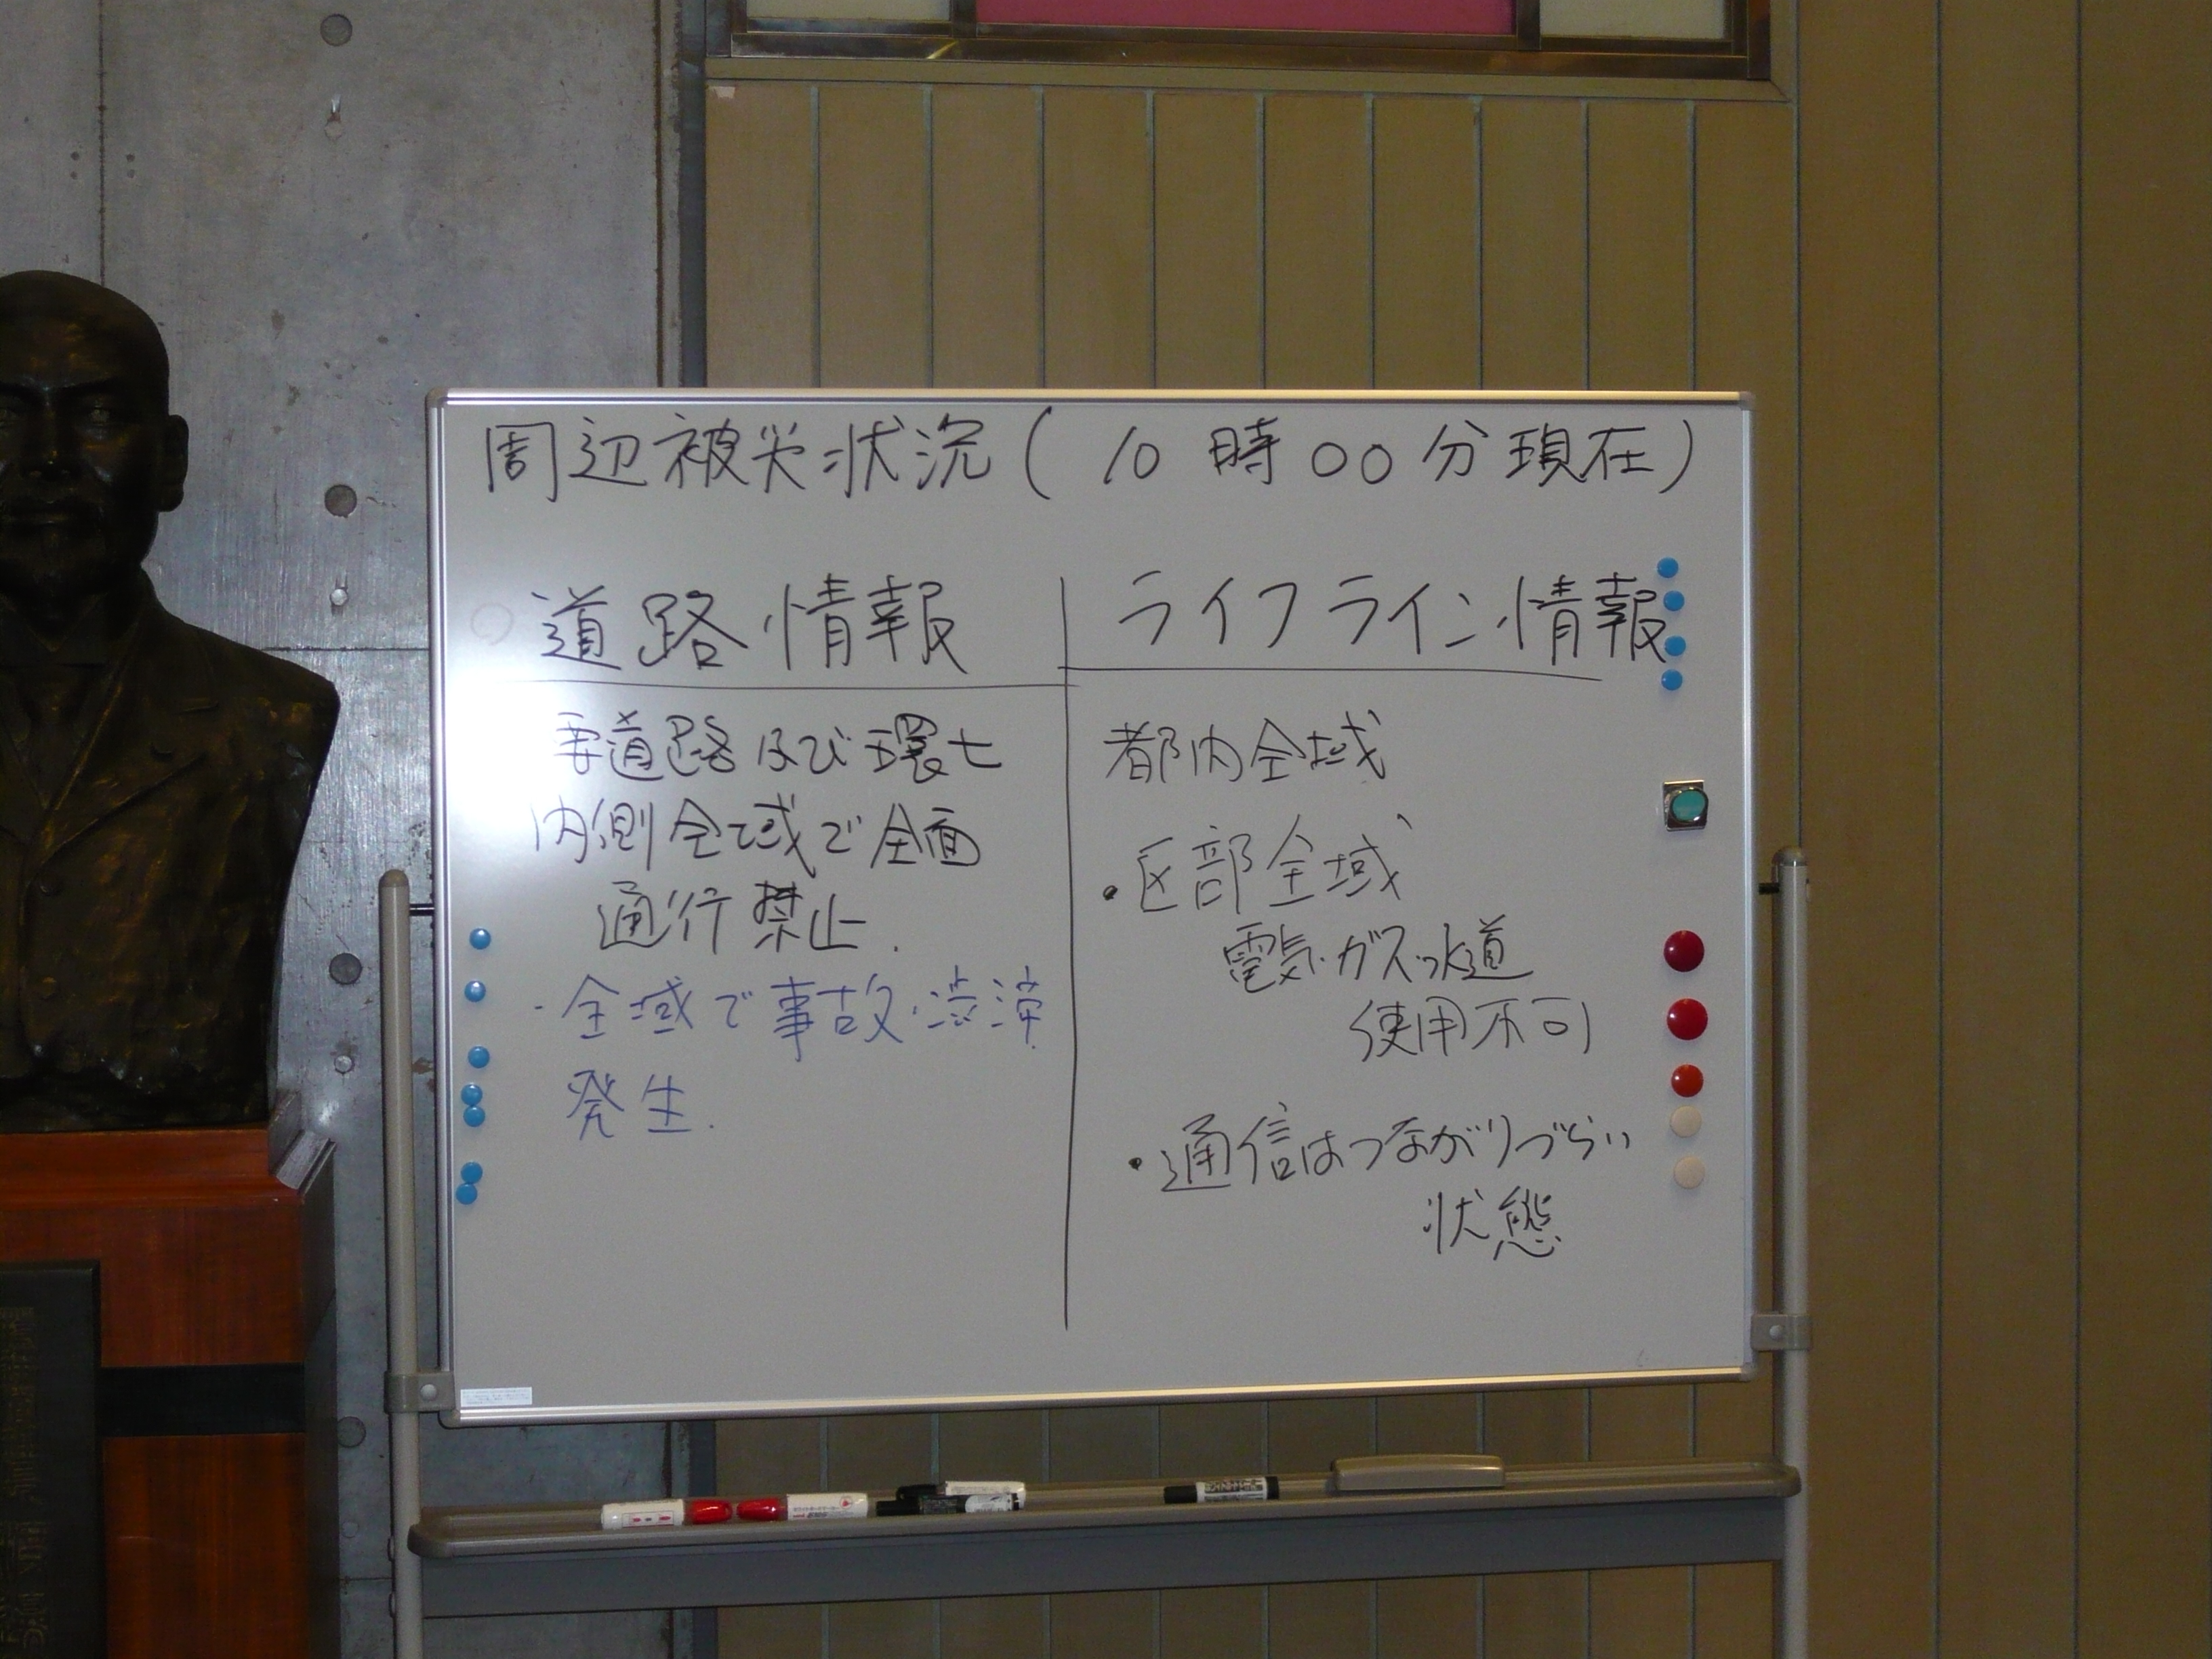 周辺被災状況(10時00分現在)
道路情報
要道路及び環七
内側全域で全面
通行禁止.
・全域で事故・渋滞
発生.
ライフライン情報
都内全域
・区部全域
電気・ガス・水道
使用不可
・通信はつながりづらい
状態